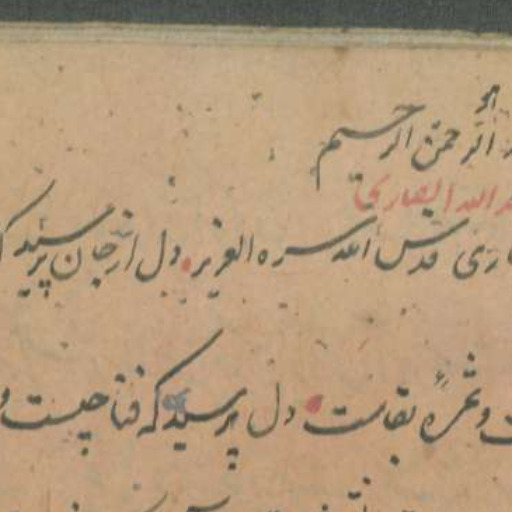 الرحمن الرحیم
الله انصاری
قدس الله سره العزیز دل از جان پرسید
وثمرهٔ بقاست دل پرسید که فنا چیست و